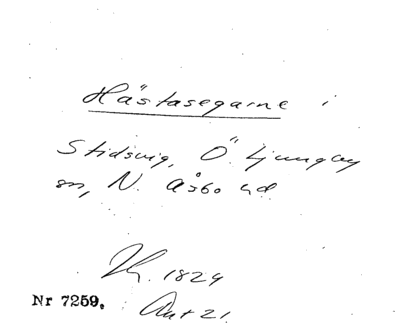 Hästasegarne i
Stidsvig, Ö. Ljungby
sn, N. Åsbo hd.
1824
Nr 7259.